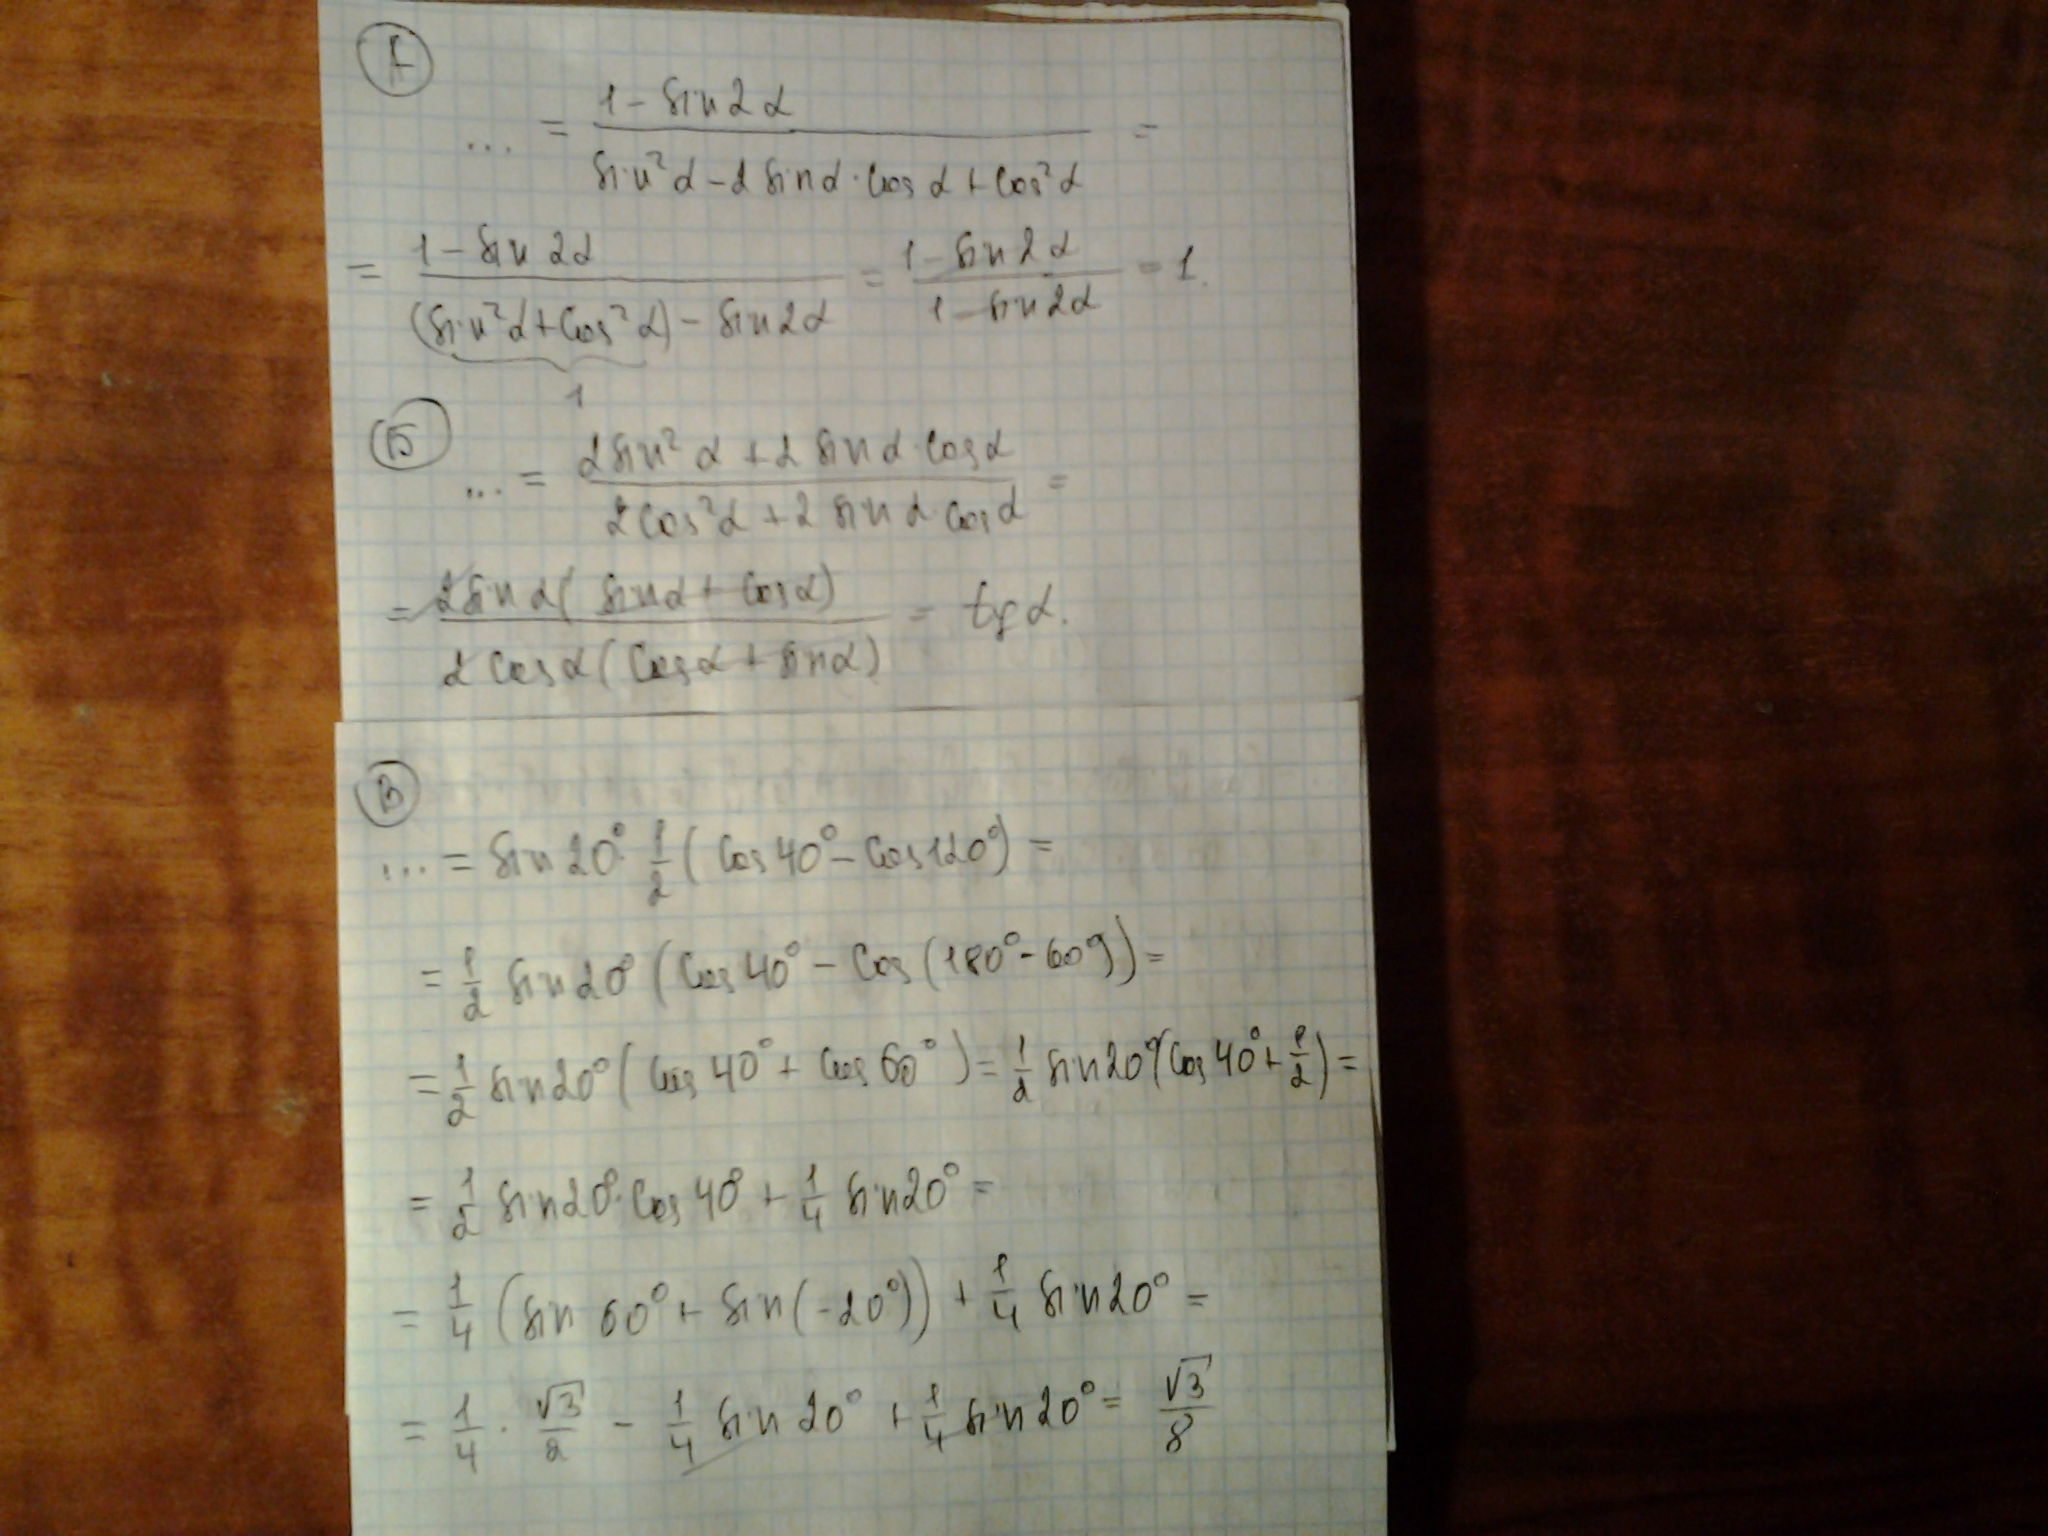 А
... = (1 - sin2α)/(sin²α - 2 sinα·cosα + cos²α) =
= (1 - sin2α)/((sin²α + cos²α) - sin2α) = (1 - sin2α)/(1 - sin2α) = 1.
1
Б
... = (2sin²α + 2 sinα·cosα)/(2cos²α + 2 sinα·cosα) =
= (2sinα(sinα + cosα))/(2cosα(cosα + sinα)) = tgα.
В
... = sin20°·1/2(cos40° - cos120°) =
= 1/2 sin20°(cos40° - cos(180° - 60°)) =
= 1/2 sin20°(cos40° + cos60°) = 1/2 sin20°(cos40° + 1/2) =
= 1/2 sin20°·cos40° + 1/4 sin20° =
= 1/4 (sin60° + sin(-20°)) + 1/4 sin20° =
= 1/4 · √3/2 - 1/4 sin20° + 1/4 sin20° = √3/8